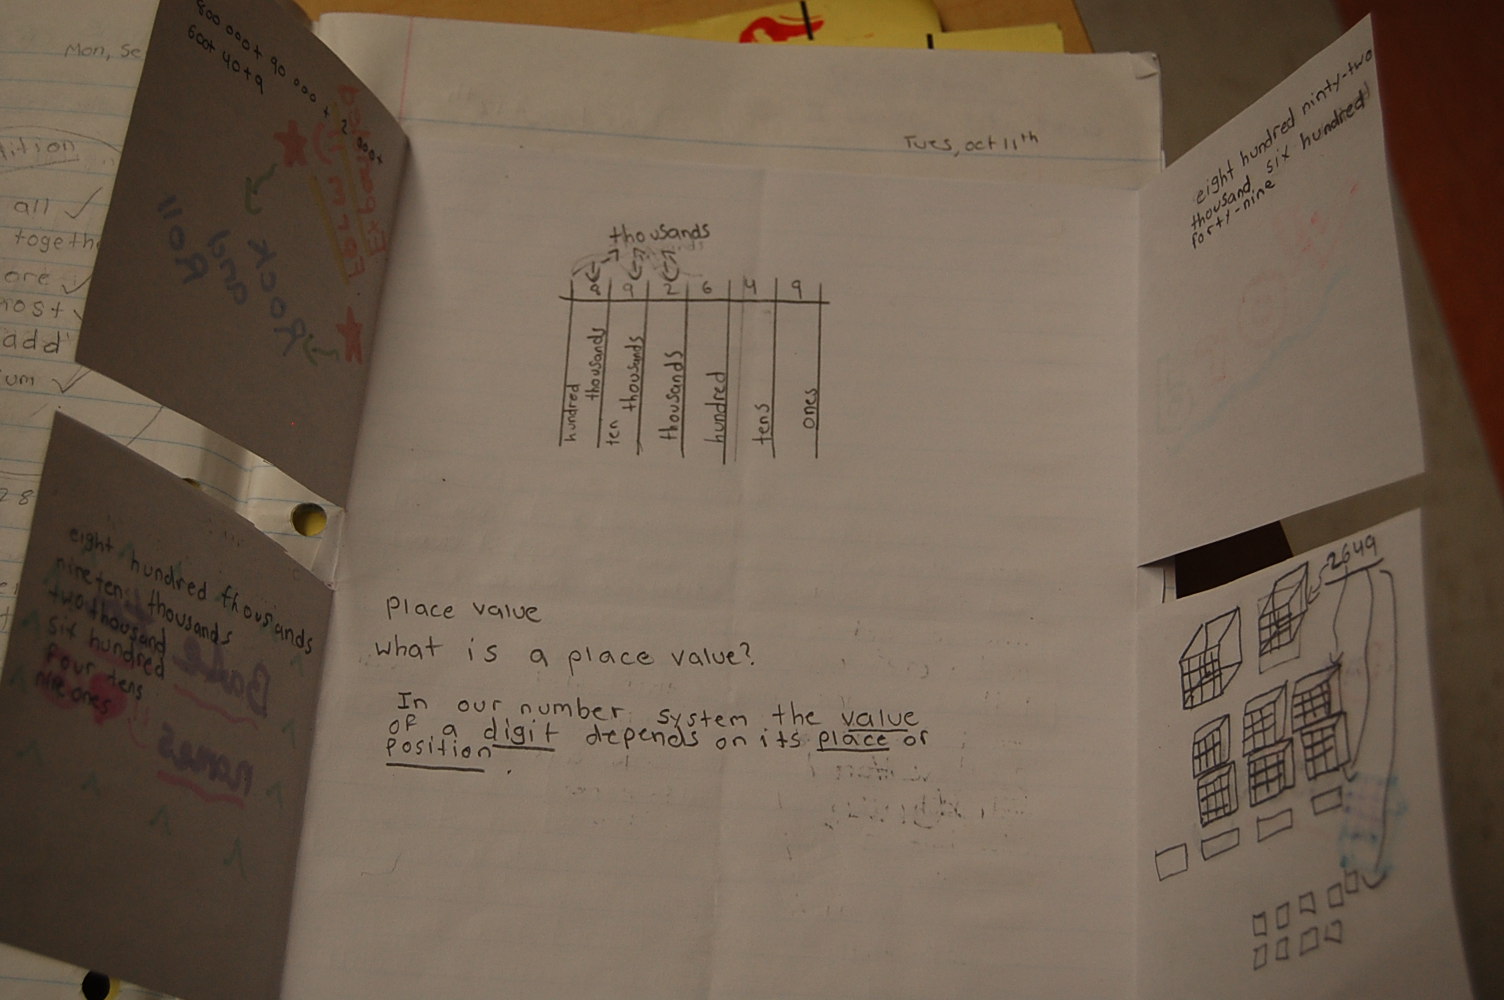 Mon, Se
all ✓
togethe
ore ✓
nost ✓
add
um ✓
28
800 000 + 90 000 + 2 000+
600+ 40+9
Expanded
Form
Rock
and
Roll
eight hundred thousands
nine ten thousands
two thousand
six hundred
four tens
nine ones
Base
names
Tues, oct 11th
thousands
8 9 2 6 4 9
hundred thousands
ten thousands
thousands
hundred
tens
ones
place value
what is a place value?
In our number system the value
of a digit depends on its place or
position.
eight hundred ninty-two
thousand, six hundred
forty-nine
2649